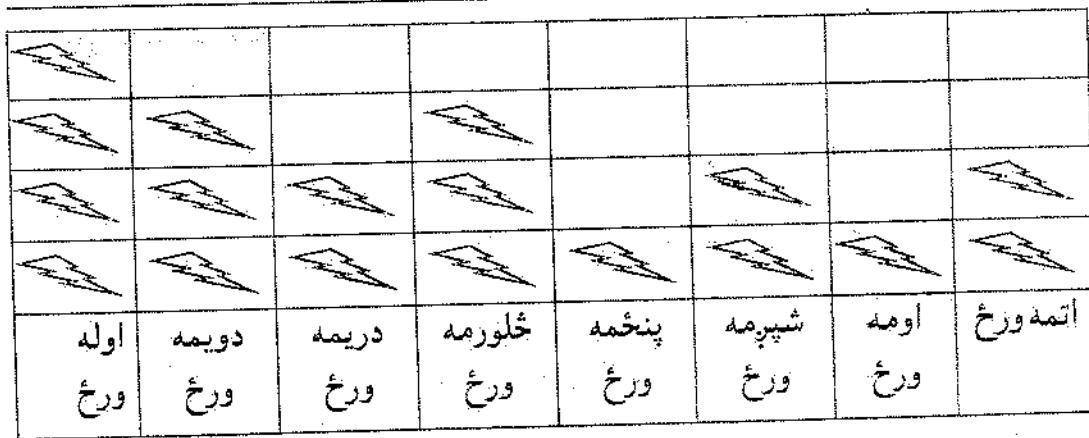 اوله ورځ
دويمه ورځ
دريمه ورځ
څلورمه ورځ
پنځمه ورځ
شپږمه ورځ
اومه ورځ
اتمه ورځ